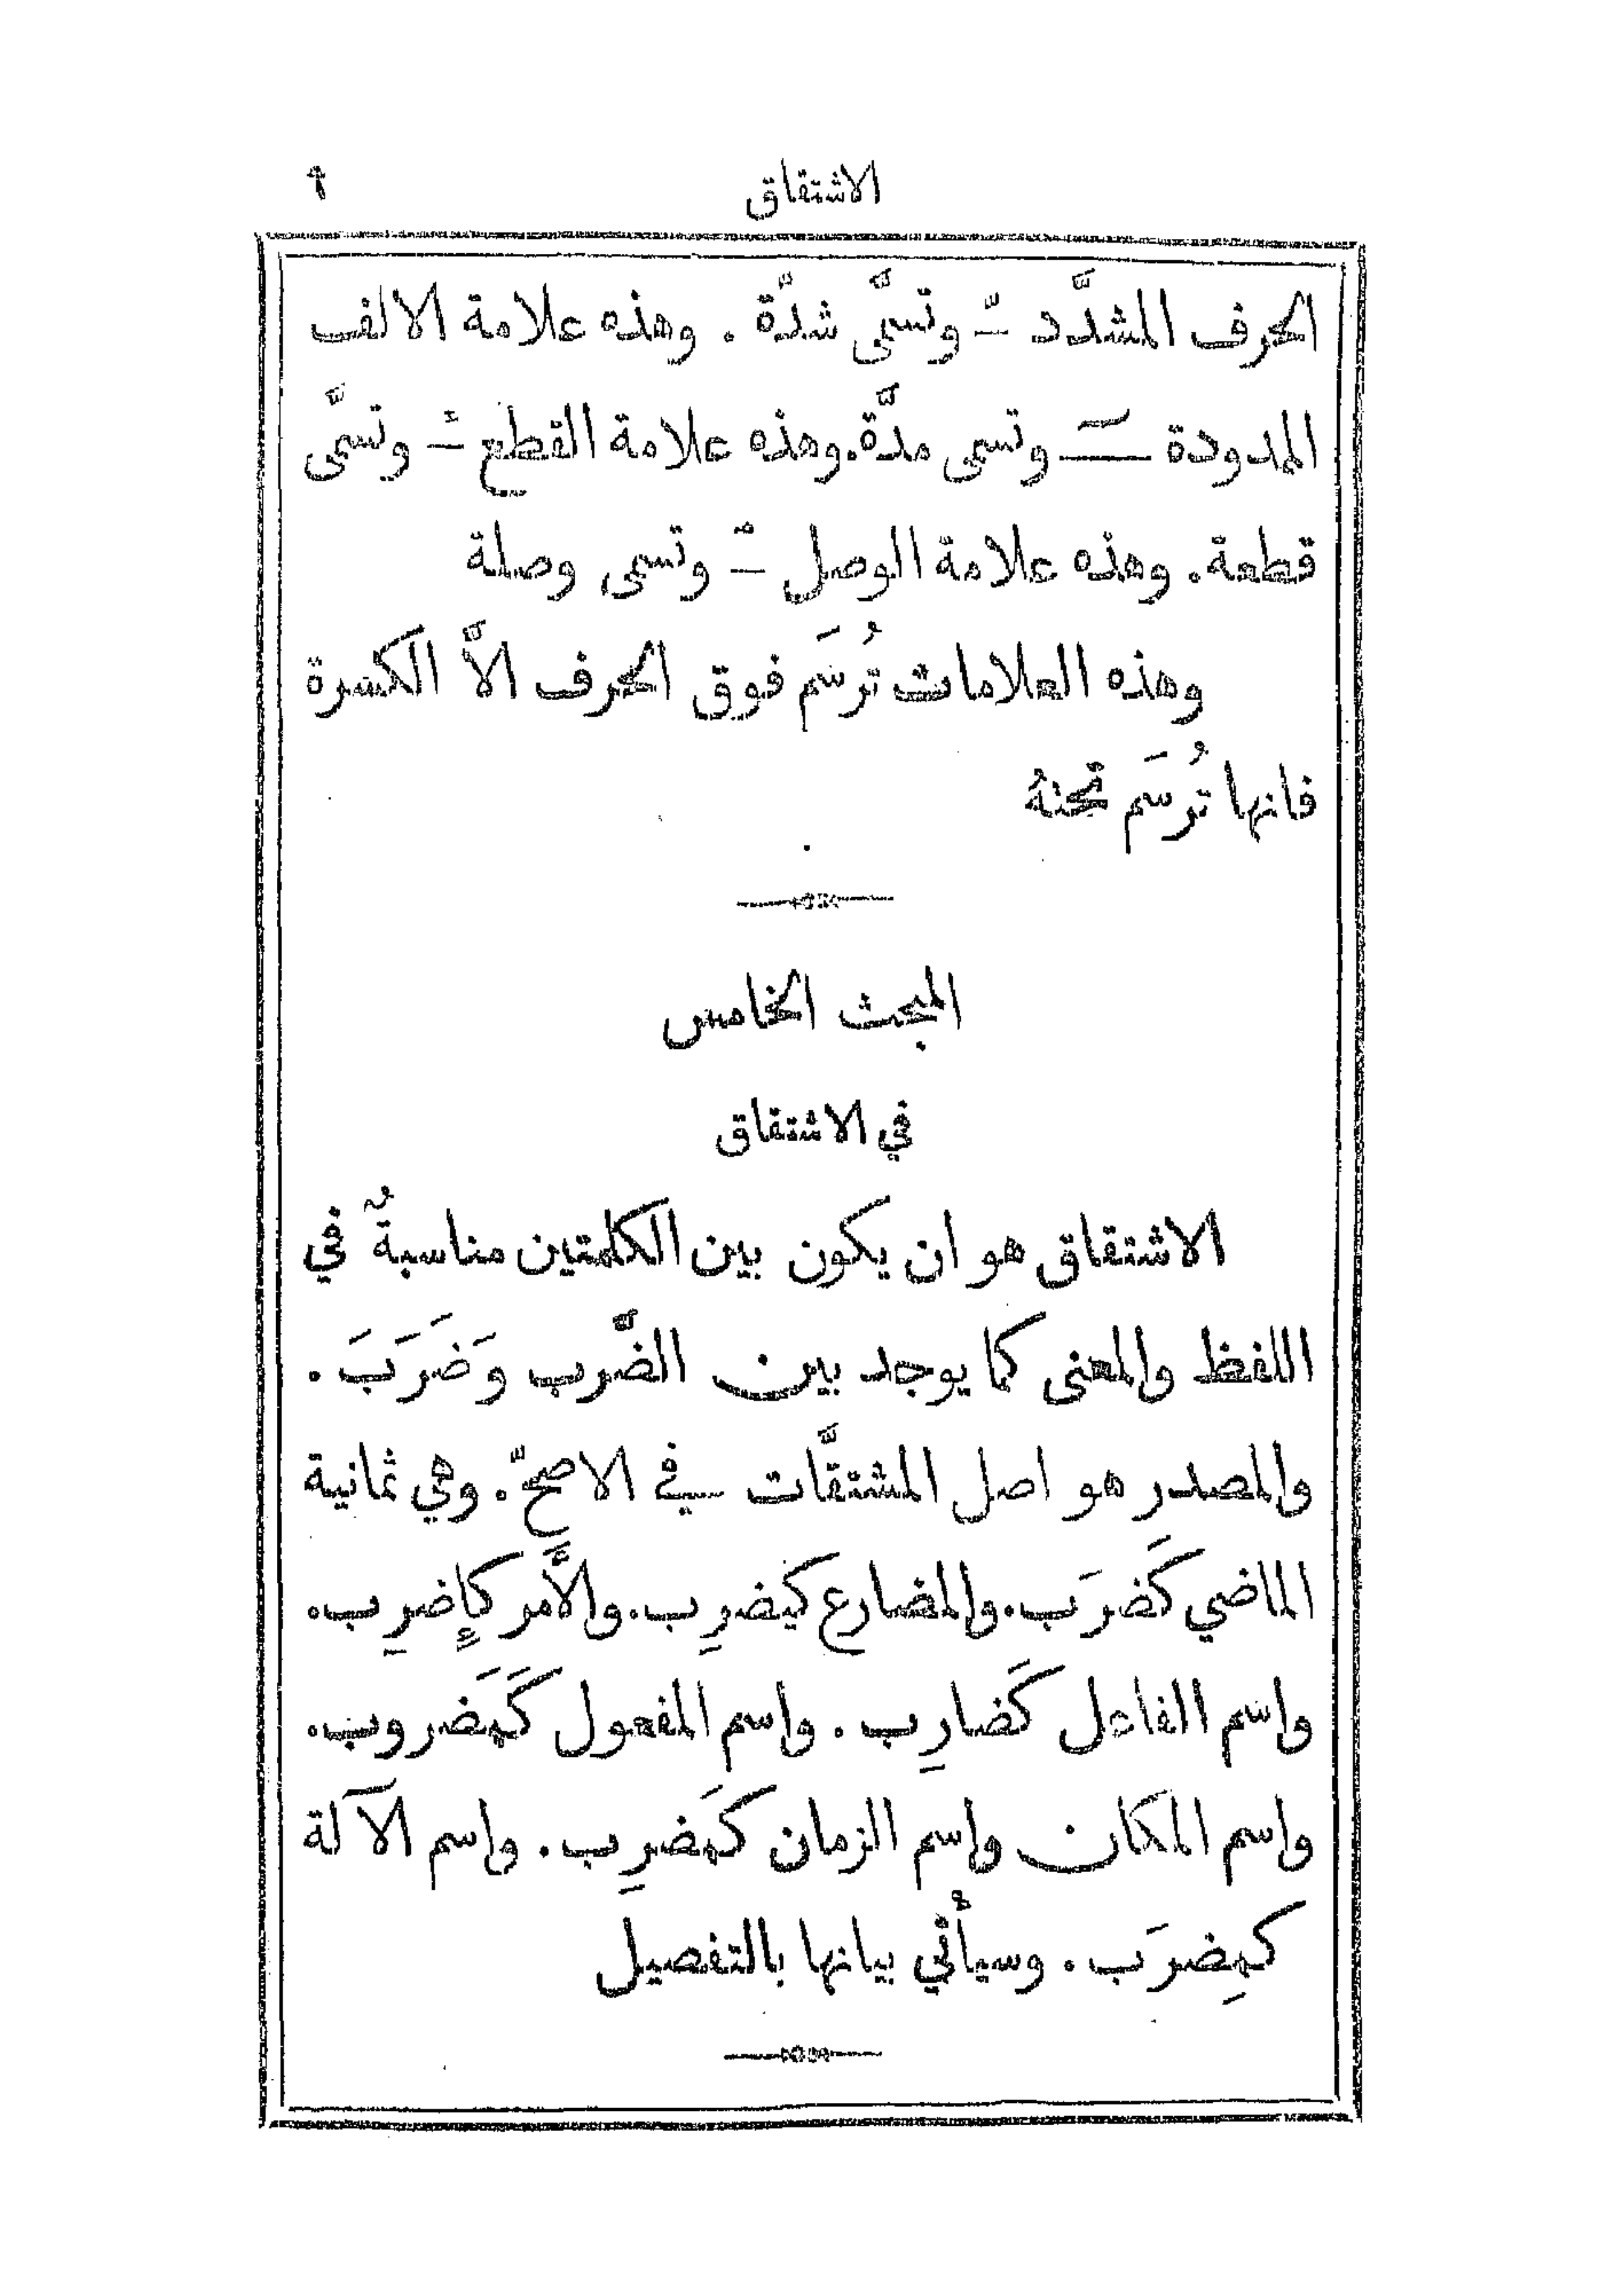 الاشتقاق ٩
الحرف المشدَّد ــّ وتسمَّى شدَّة . وهذه علامة الالف
الممدودة ــٓ وتسمى مدَّة . وهذه علامة القطع ــٔ وتسمَّى
قطعة . وهذه علامة الوصل ــٌ وتسمى وصلة
وهذه العلامات تُرسَم فوق الحرف الاَّ الكسرة
فانها تُرسَم تحتهُ
المبحث الخامس
في الاشتقاق
الاشتقاق هو ان يكون بين الكلمتين مناسبةٌ في
اللفظ والمعنى كما يوجد بين الضَّرب وَضَرَبَ .
والمصدر هو اصل المشتقَّات في الاصحّ . وهي ثمانية
الماضي كَضرَب . والمضارع كيضرِب . والأَمر كإِضرِب .
واسم الفاعل كَضارِب . واسم المفعول كَمَضروب .
واسم المكان واسم الزمان كمَضرِب . واسم الآلة
كمِضرَب . وسيأتي بيانها بالتفصيل